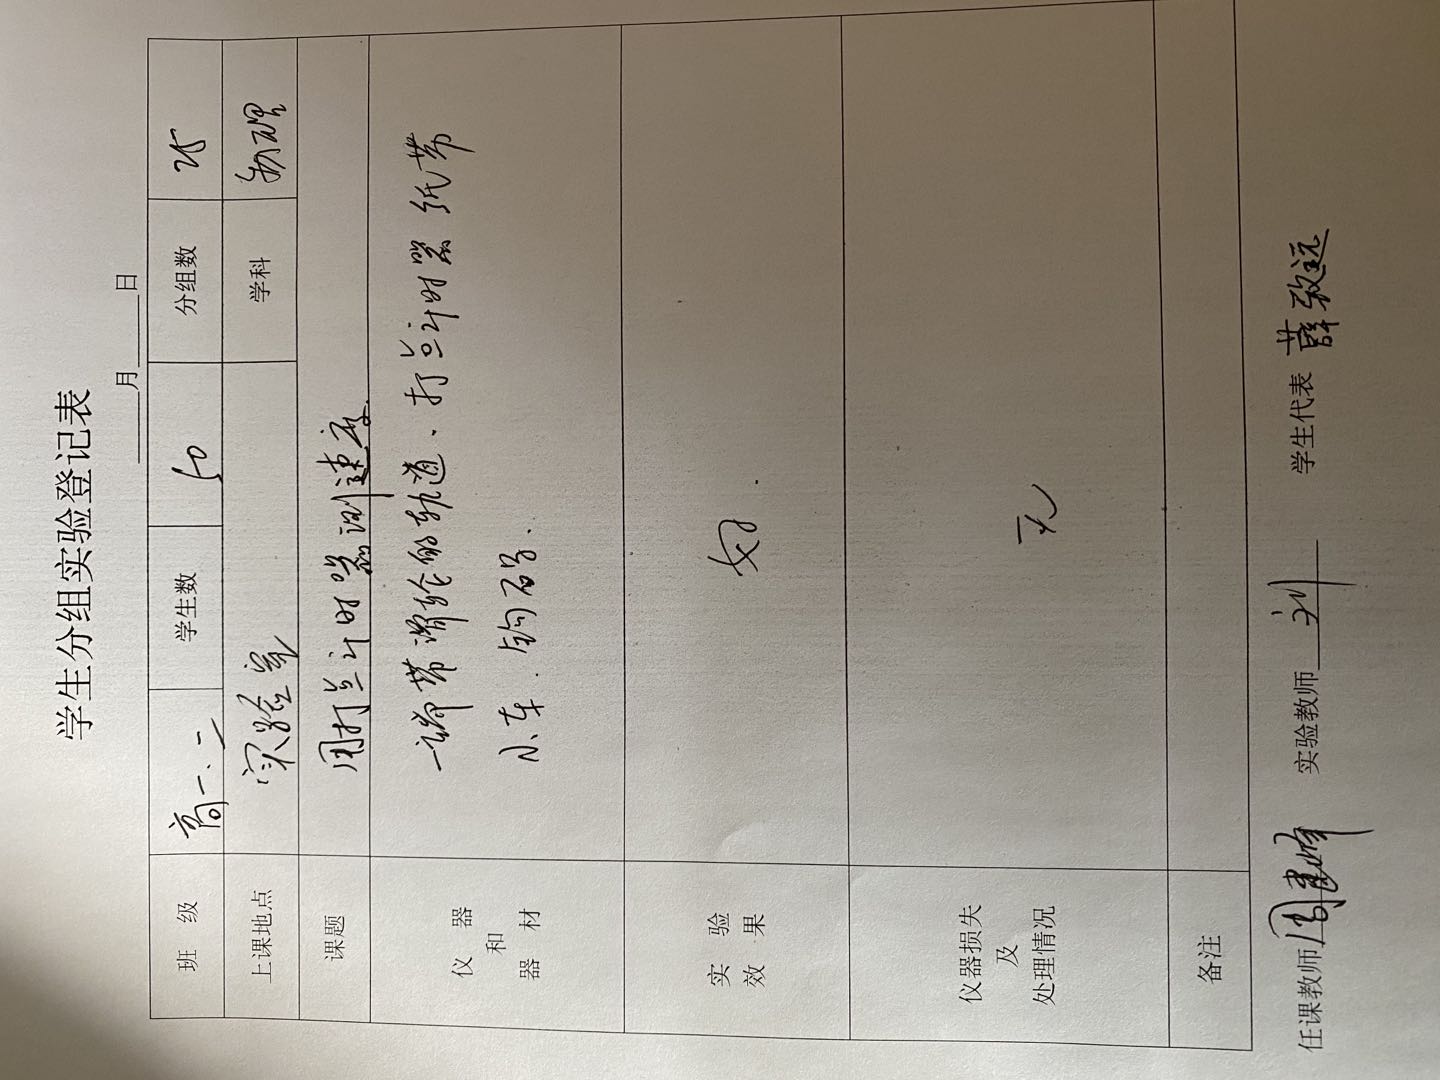 学生分组实验登记表
月 日
班 级 高一、二 学生数 50 分组数 25
上课地点 实验室 学科 物理
课题 用打点计时器测速度.
仪 器 和 器 材 一端带滑轮的轨道、打点计时器 纸带
小车. 钩码.
实 验 效 果 好.
仪器损失 及 处理情况 无
备注
任课教师 周建峰 实验教师 刘 学生代表 薛致远